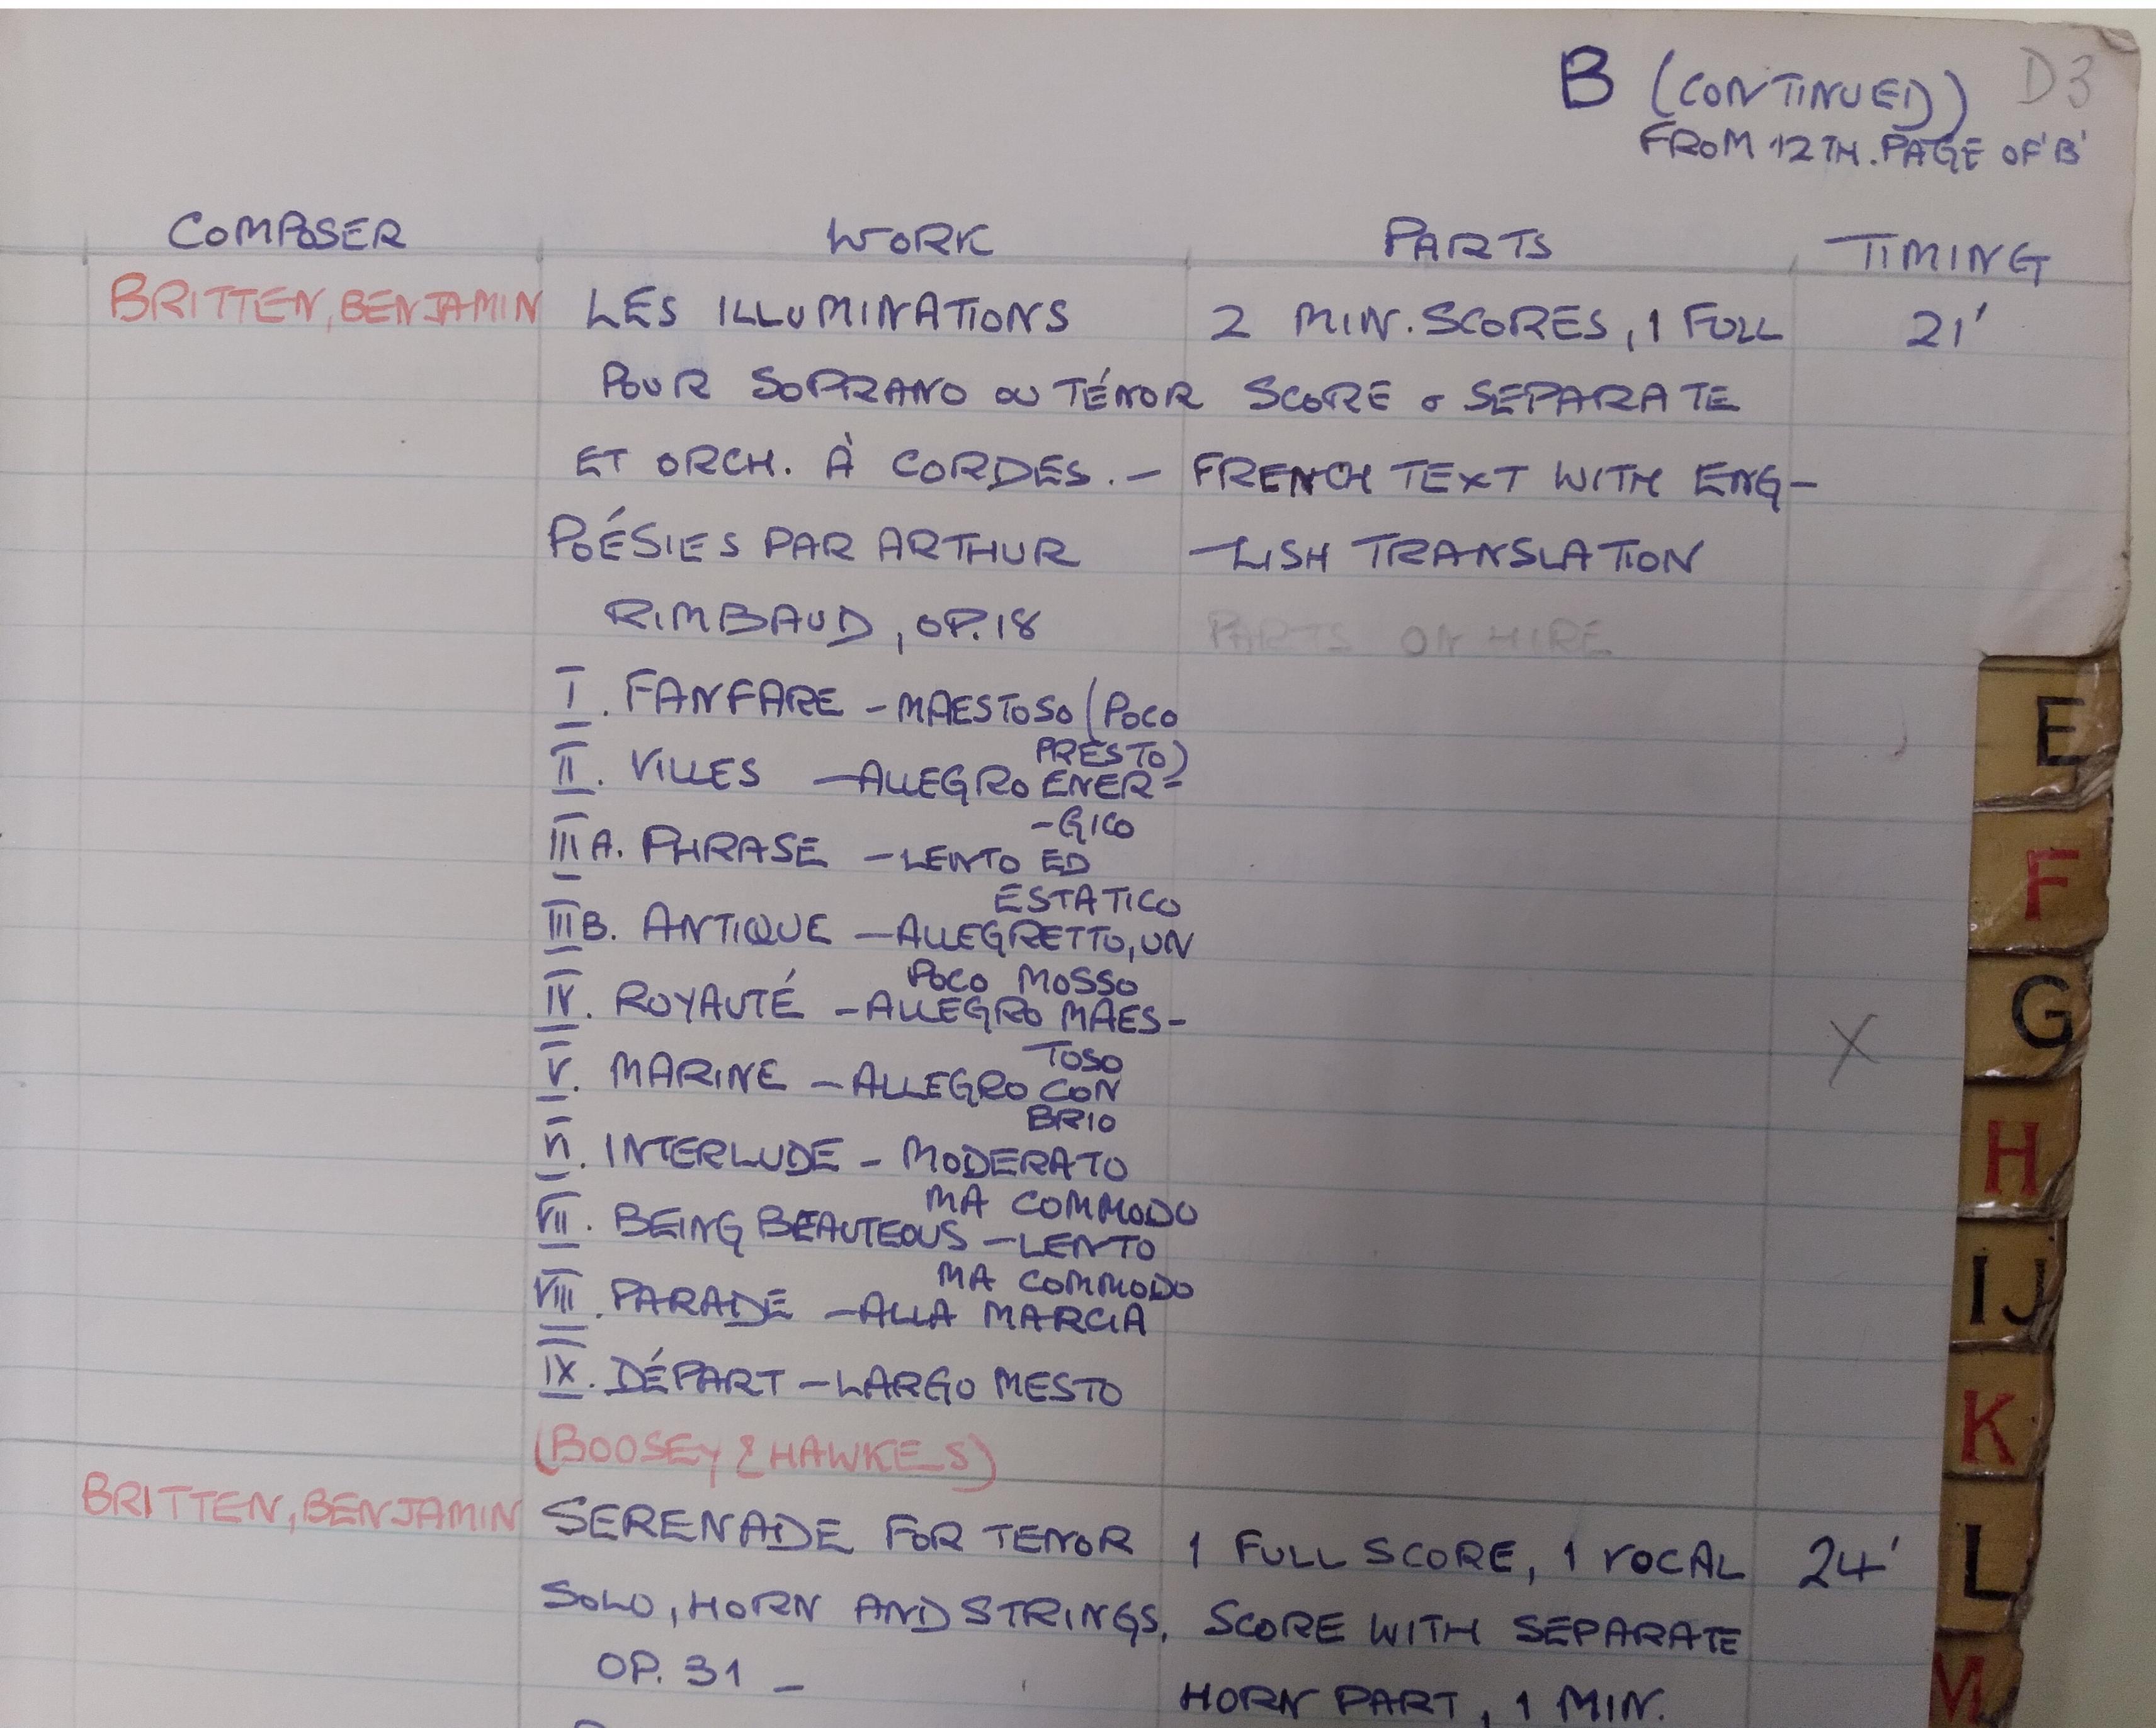 B (CONTINUED) D3
FROM 12TH. PAGE OF 'B'
COMPOSER WORK PARTS TIMING
BRITTEN, BENJAMIN LES ILLUMINATIONS 2 MIN. SCORES, 1 FULL 21'
POUR SOPRANO OU TÉNOR SCORE & SEPARATE
ET ORCH. À CORDES. – FRENCH TEXT WITH ENG-
POÉSIES PAR ARTHUR -LISH TRANSLATION
RIMBAUD, OP. 18 PARTS ON HIRE
I. FANFARE – MAESTOSO (POCO
PRESTO)
II. VILLES – ALLEGRO ENER-
-GICO
III A. PHRASE – LENTO ED
ESTATICO
III B. ANTIQUE – ALLEGRETTO, UN
POCO MOSSO
IV. ROYAUTÉ – ALLEGRO MAES-
TOSO
V. MARINE – ALLEGRO CON
BRIO
VI. INTERLUDE – MODERATO
MA COMMODO
VII. BEING BEAUTEOUS – LENTO
MA COMMODO
VIII. PARADE – ALLA MARCIA
IX. DÉPART – LARGO MESTO
(BOOSEY & HAWKES)
BRITTEN, BENJAMIN SERENADE FOR TENOR 1 FULL SCORE, 1 VOCAL 24'
SOLO, HORN AND STRINGS, SCORE WITH SEPARATE
OP. 31 – HORN PART, 1 MIN.
X
E
F
G
H
IJ
K
L
M